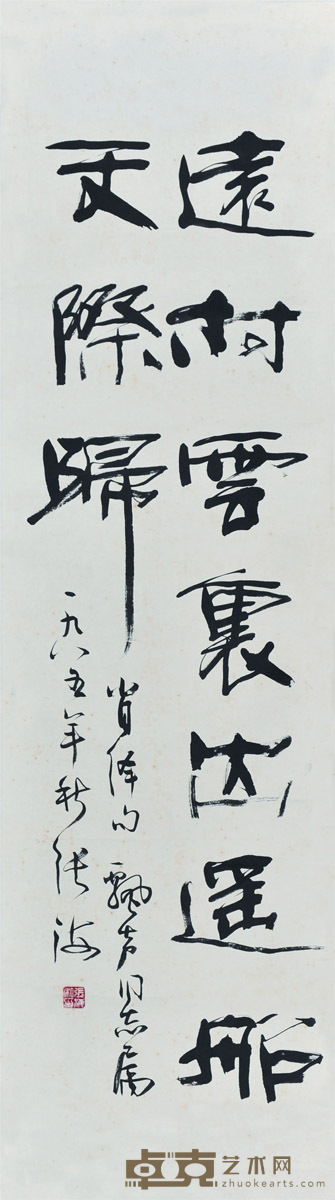 遠村雲裏出遥船
天際歸
肖绛句 飘声同志属
一九八五年秋 张海
卓克艺术网
www.zhuokearts.com